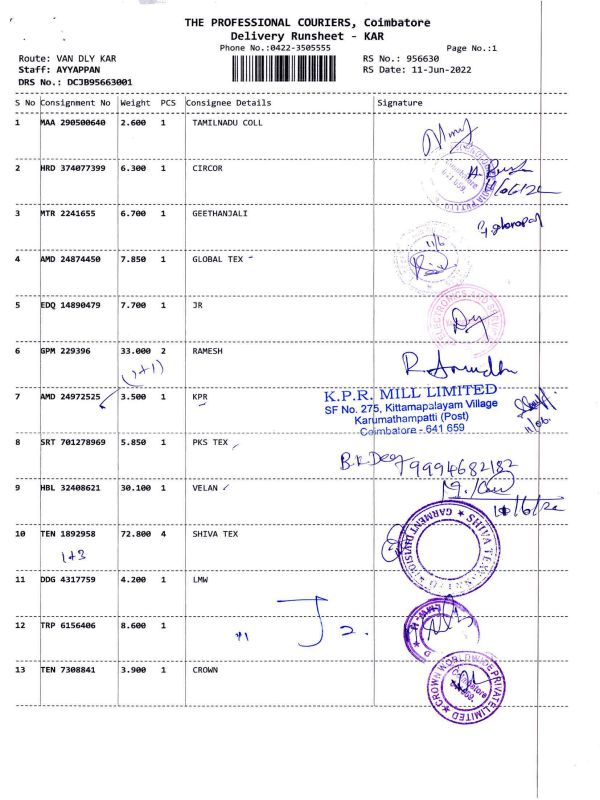 THE PROFESSIONAL COURIERS, Coimbatore
Delivery Runsheet - KAR
Phone No.:0422-3505555
Page No.:1
Route: VAN DLY KAR
RS No.: 956630
Staff: AYYAPPAN
RS Date: 11-Jun-2022
DRS No.: DCJB95663001
S No Consignment No Weight PCS Consignee Details Signature
1 MAA 290500640 2.600 1 TAMILNADU COLL
2 HRD 374077399 6.300 1 CIRCOR
Coimbatore
641 659.
11/06/22
3 MTR 2241655 6.700 1 GEETHANJALI
11/6
4 AMD 24874450 7.850 1 GLOBAL TEX
5 EDQ 14890479 7.700 1 JR
6 GPM 229396 33.000 2 RAMESH
(1+1)
7 AMD 24972525 3.500 1 KPR
K.P.R. MILL LIMITED
SF No. 275, Kittamapalayam Village
Karumathampatti (Post)
Coimbatore - 641 659
11/06.
8 SRT 701278969 5.850 1 PKS TEX
9994682182
9 HBL 32408621 30.100 1 VELAN
10 TEN 1892958 72.800 4 SHIVA TEX
1+3
GARMENT DIVISION
11 DDG 4317759 4.200 1 LMW
12 TRP 6156406 8.600 1
2.
13 TEN 7308841 3.900 1 CROWN
CROWN WORLDWIDE PRIVATE LIMITED
Coimbatore